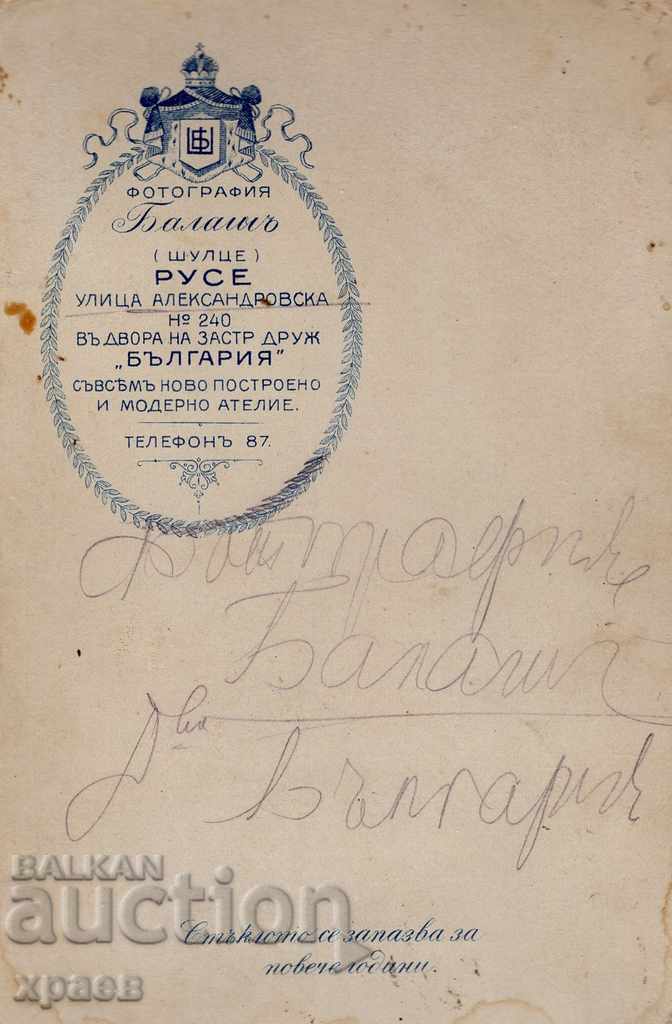 ФОТОГРАФИЯ
Балашъ
(ШУЛЦЕ)
РУСЕ
УЛИЦА АЛЕКСАНДРОВСКА
№ 240
ВЪ ДВОРА НА ЗАСТР ДРУЖ
„БЪЛГАРИЯ"
СЪВСѢМЪ НОВО ПОСТРОЕНО
И МОДЕРНО АТЕЛИЕ.
ТЕЛЕФОНЪ 87.
Фотография
Балашъ
Д-во
България
BALKAN
auction
Стъклото се запазва за
повече години.
храев